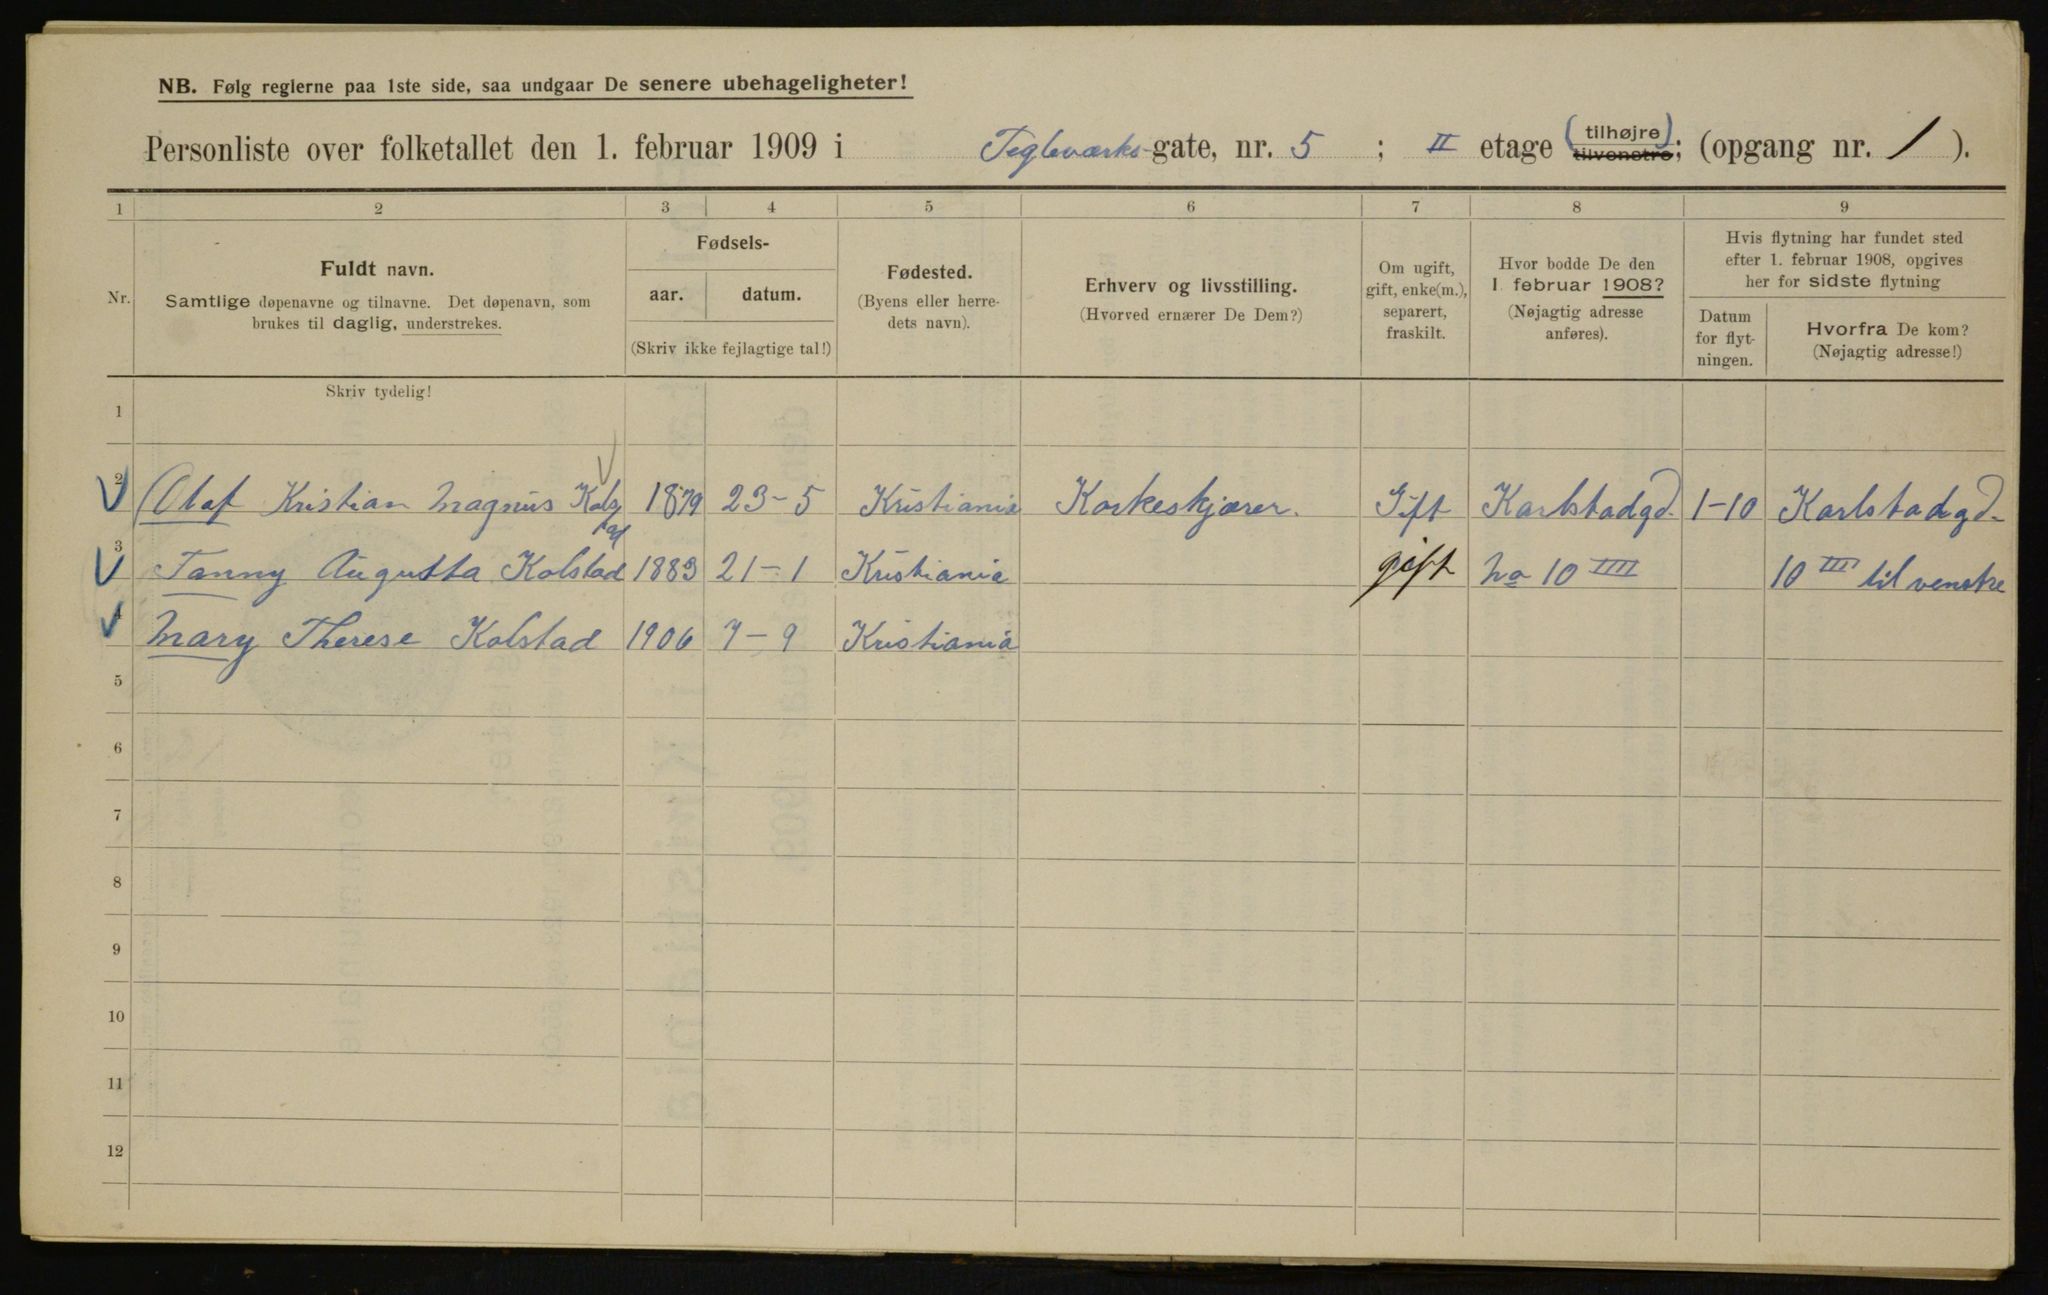 NB. Følg reglerne paa 1ste side, saa undgaar De senere ubehageligheter!
Personliste over folketallet den 1. februar 1909 i Teglværks-gate, nr. 5 ; II etage (tilhøjre) tilvenstre; (opgang nr. 1 ).
1 2 3 4 5 6 7 8 9
Nr.
Fuldt navn.
Samtlige døpenavne og tilnavne. Det døpenavn, som
brukes til daglig, understrekes.
Fødsels-
aar.
datum.
(Skriv ikke fejlagtige tal!)
Fødested.
(Byens eller herre-
dets navn).
Erhverv og livsstilling.
(Hvorved ernærer De Dem?)
Om ugift,
gift, enke(m.),
separert,
fraskilt.
Hvor bodde De den
1. februar 1908?
(Nøjagtig adresse
anføres).
Hvis flytning har fundet sted
efter 1. februar 1908, opgives
her for sidste flytning
Datum
for flyt-
ningen.
Hvorfra De kom?
(Nøjagtig adresse!)
Skriv tydelig!
1
2 Olaf Kristian Magnus Kols 1879 23-5 Kristiania Korkeskjærer. Gift Karlstadgd. 1-10 Karlstadgd.
tad
3 Fanny Augusta Kolstad 1883 21-1 Kristiania gift No 10 IIII 10 III til venstre
4 Mary Therese Kolstad 1906 7-9 Kristiania
5
6
7
8
9
10
11
12